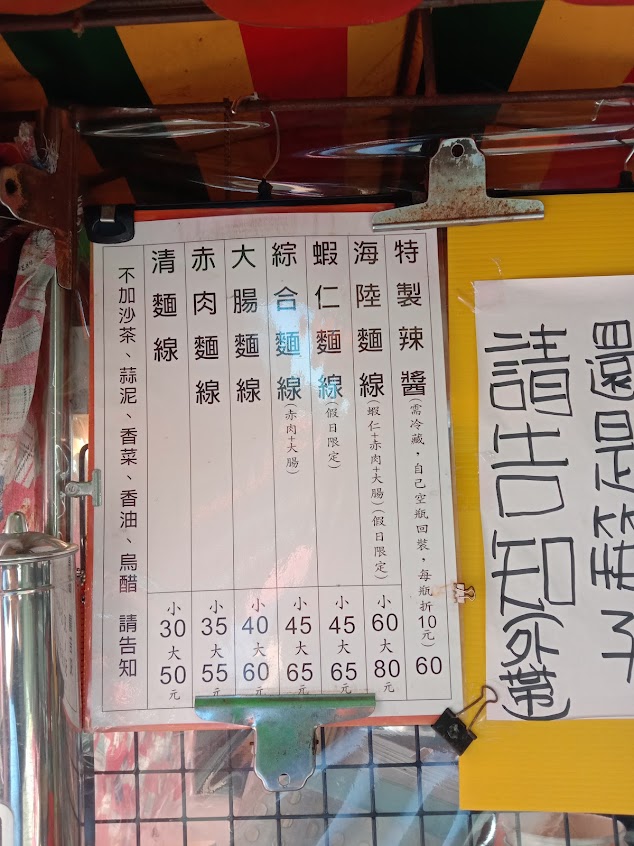 還是筷子
請告知(外帶)
特製辣醬(需冷藏，自己空瓶回裝，每瓶折10元) 60
海陸麵線(蝦仁+赤肉+大腸)(假日限定) 小60大80元
蝦仁麵線(假日限定) 小45大65元
綜合麵線(赤肉+大腸) 小45大65元
大腸麵線 小40大60元
赤肉麵線 小35大55元
清麵線 小30大50元
不加沙茶、蒜泥、香菜、香油、烏醋 請告知